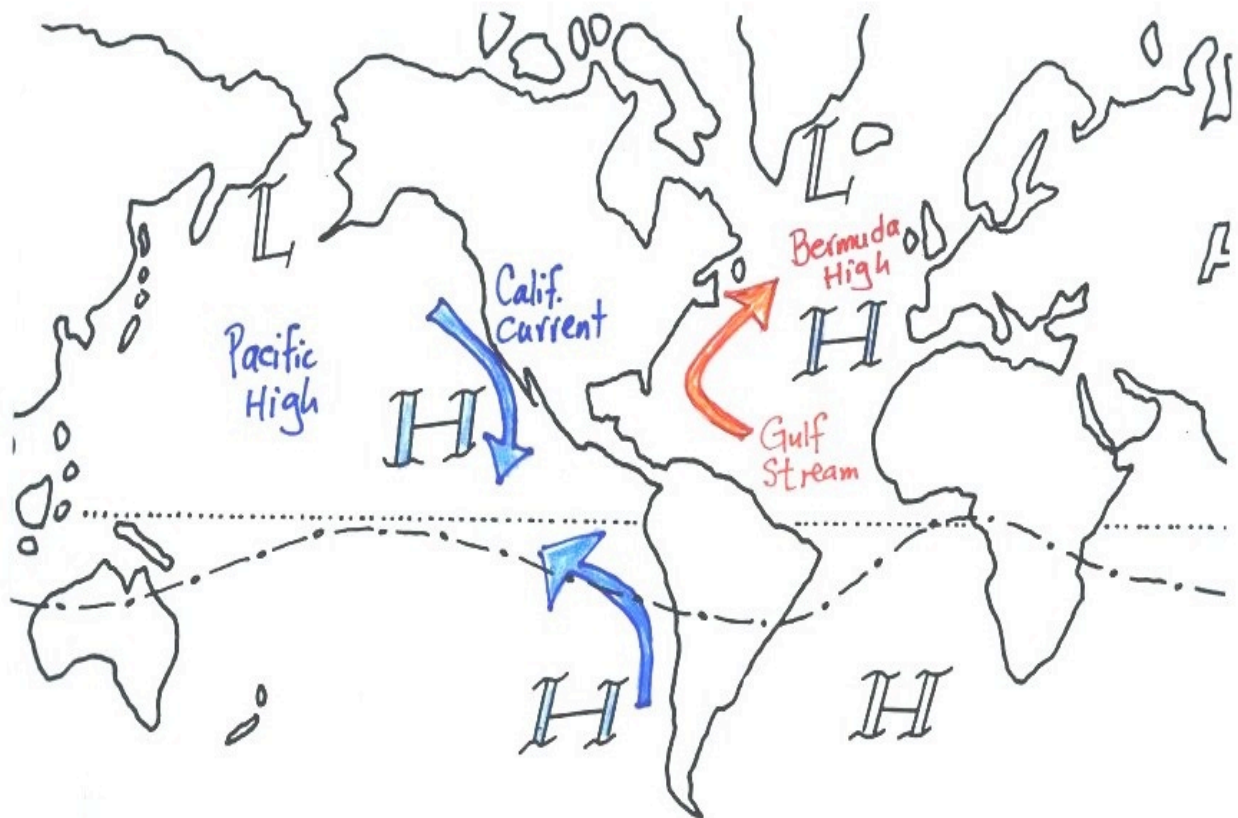 L
L
Bermuda
High
A
Calif.
current
Pacific
High
H
H
Gulf
Stream
H
H